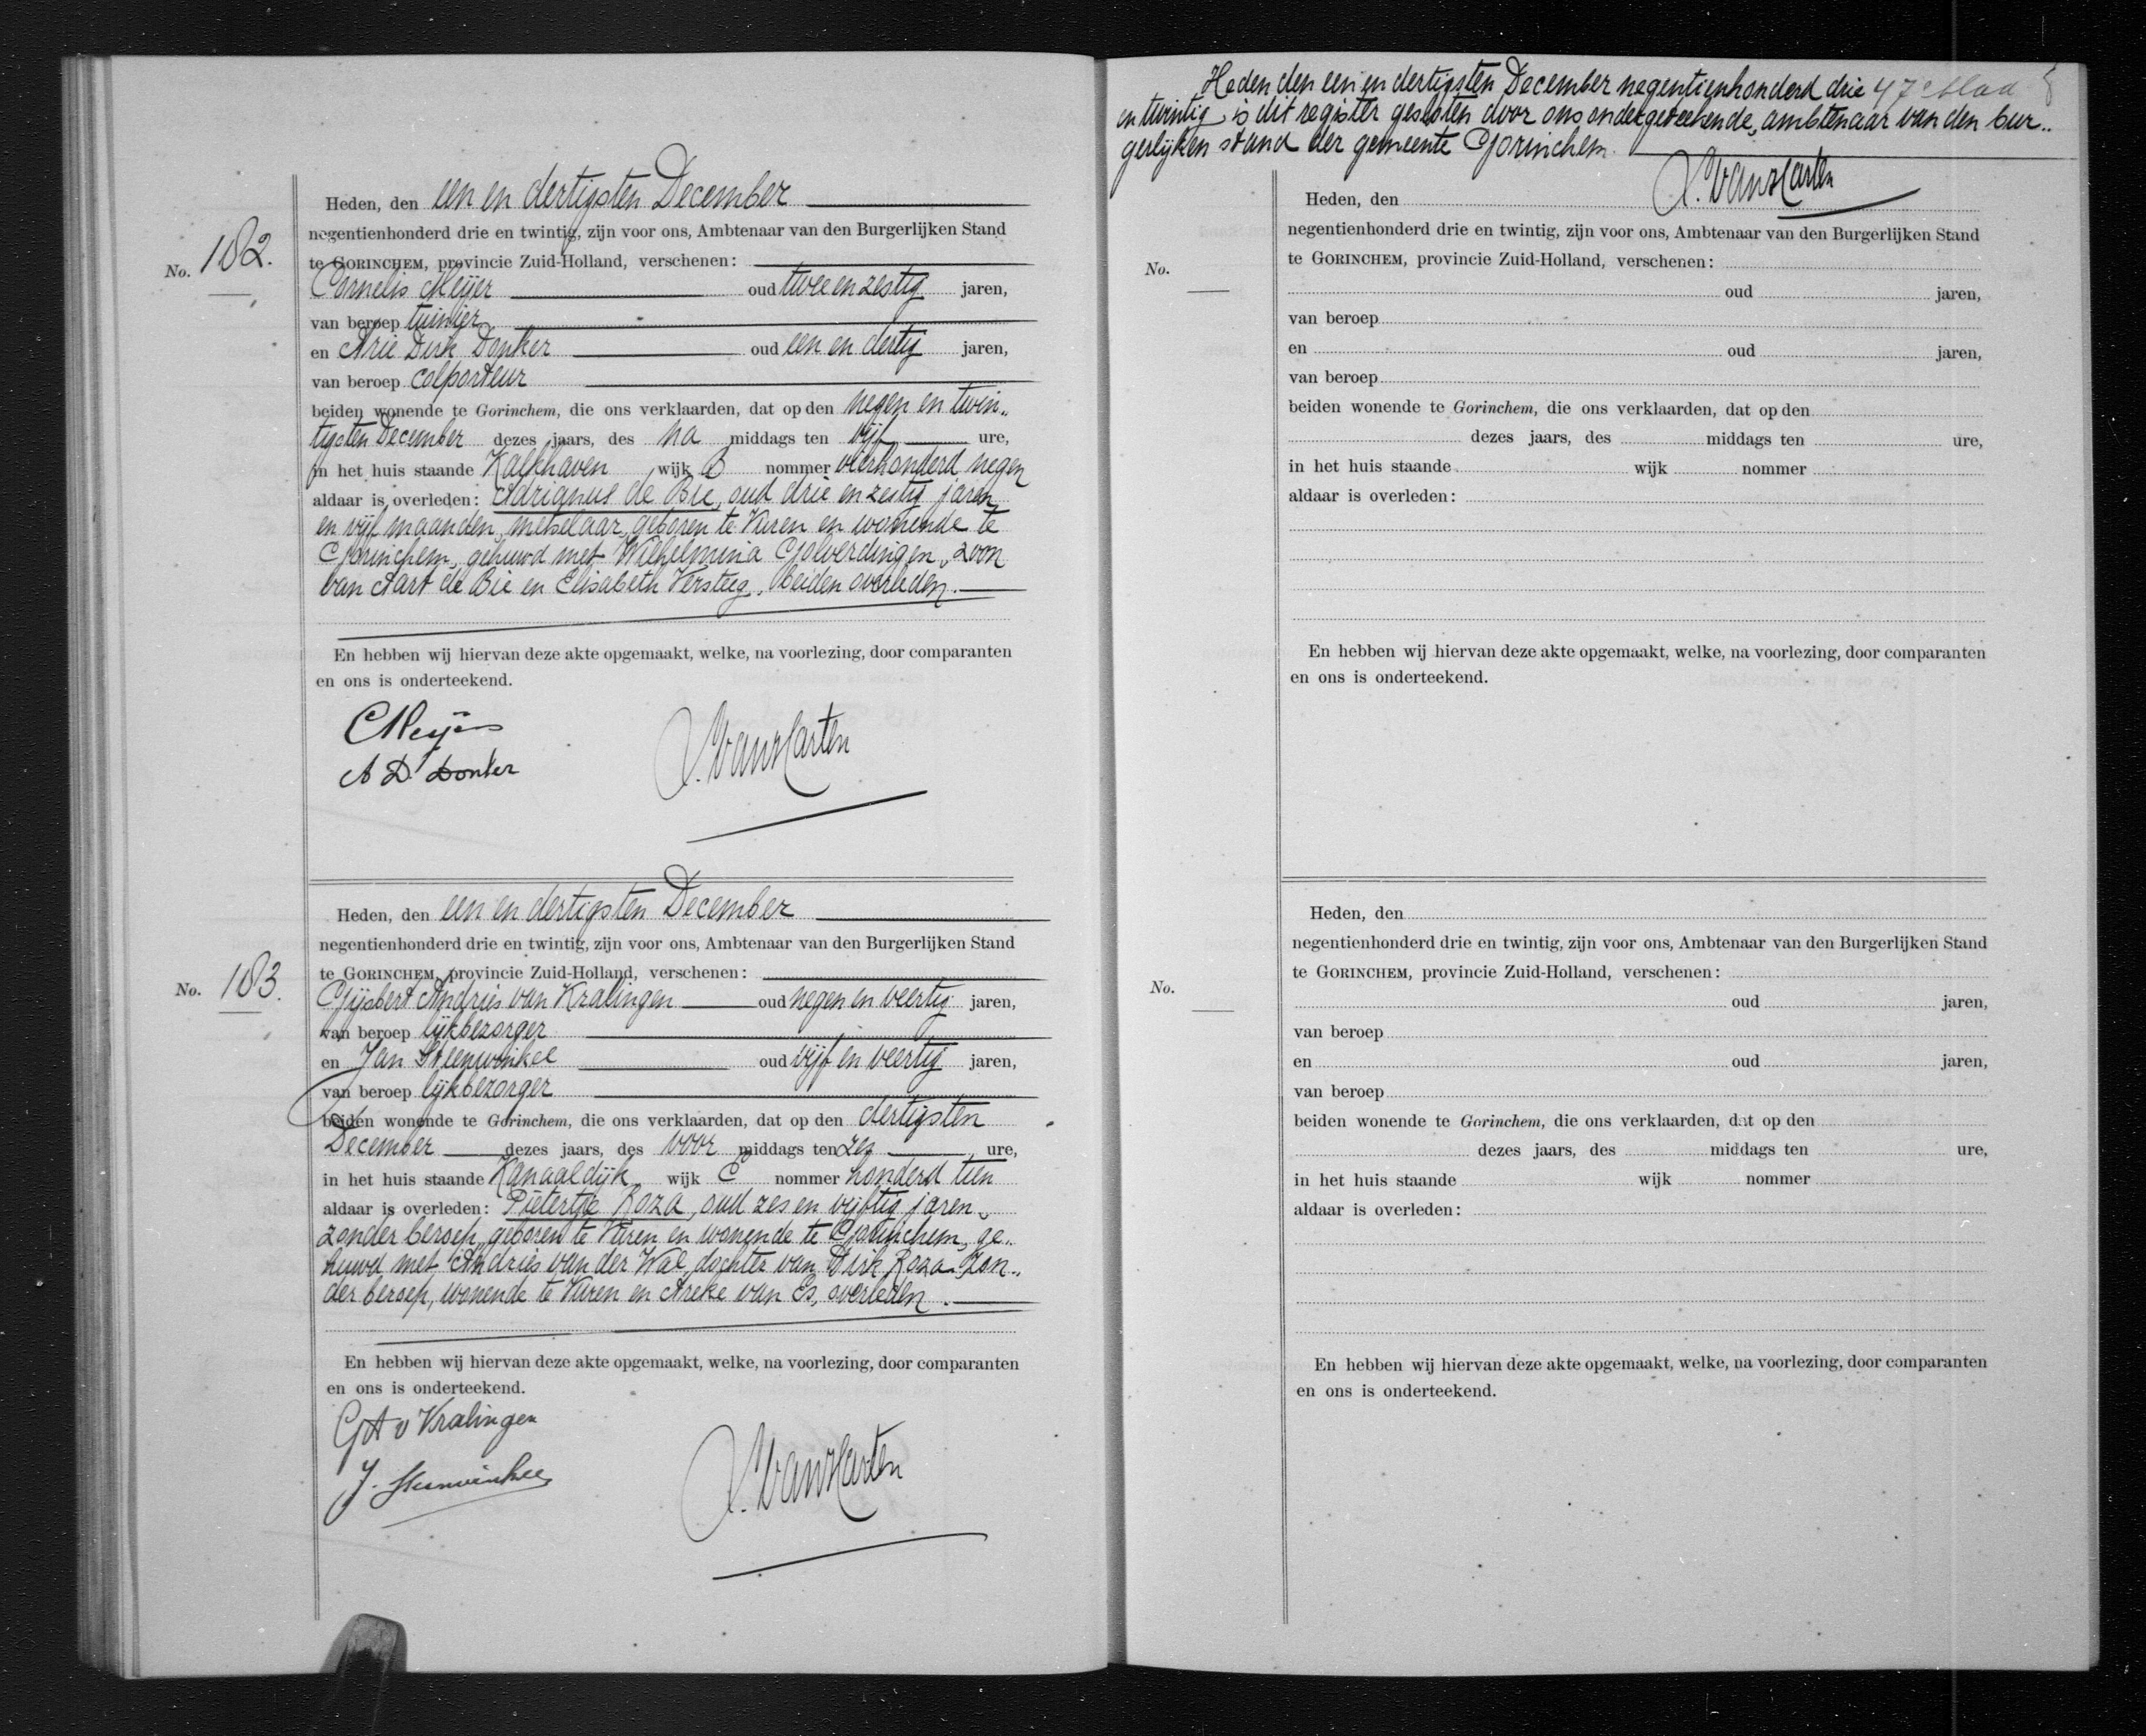 No. 182.
Heden, den een en dertigsten December
negentienhonderd drie en twintig, zijn voor ons, Ambtenaar van den Burgerlijken Stand
te GORINCHEM, provincie Zuid-Holland, verschenen:
Cornelis Meijer oud twee en zestig jaren,
van beroep tuinier
en Arie Dirk Donker oud een en dertig jaren,
van beroep colporteur
beiden wonende te Gorinchem, die ons verklaarden, dat op den negen en twin„
tigsten December dezes jaars, des na middags ten vijf ure,
in het huis staande Kalkhaven wijk B nommer vierhonderd negen
aldaar is overleden: Adrianus de Bie, oud drie en zestig jaren
en vijf maanden, metselaar, geboren te Vuren en wonende te
Gorinchem, gehuwd met Wilhelmina Golverdingen, zoon
van Aart de Bie en Elisabeth Versteeg, beiden overleden.
En hebben wij hiervan deze akte opgemaakt, welke, na voorlezing, door comparanten
en ons is onderteekend.
C Meijer
A D. Donker
No. 183.
Heden, den een en dertigsten December
negentienhonderd drie en twintig, zijn voor ons, Ambtenaar van den Burgerlijken Stand
te GORINCHEM, provincie Zuid-Holland, verschenen:
Gijsbert Andries van Kralingen oud negen en veertig jaren,
van beroep lijkbezorger
en Jan Steenwinkel oud vijf en veertig jaren,
van beroep lijkbezorger
beiden wonende te Gorinchem, die ons verklaarden, dat op den dertigsten
December dezes jaars, des voor middags ten zes ure,
in het huis staande Kanaaldijk wijk E nommer honderd tien
aldaar is overleden: Pietertje Roza, oud zes en vijftig jaren,
zonder beroep, geboren te Vuren en wonende te Gorinchem, ge„
huwd met Andries van der Wal, dochter van Dirk Roza zon„
der beroep, wonende te Vuren en Areke van Es, overleden.
En hebben wij hiervan deze akte opgemaakt, welke, na voorlezing, door comparanten
en ons is onderteekend.
GA v Kralingen
J. Steenwinkel
Heden den een en dertigsten December negentienhonderd drie 47e blad
en twintig is dit register gesloten door ons ondergeteekende, ambtenaar van den bur„
gerlijken stand der gemeente Gorinchem.
No.
Heden, den
negentienhonderd drie en twintig, zijn voor ons, Ambtenaar van den Burgerlijken Stand
te GORINCHEM, provincie Zuid-Holland, verschenen:
oud jaren,
van beroep
en oud jaren,
van beroep
beiden wonende te Gorinchem, die ons verklaarden, dat op den
dezes jaars, des middags ten ure,
in het huis staande wijk nommer
aldaar is overleden:
En hebben wij hiervan deze akte opgemaakt, welke, na voorlezing, door comparanten
en ons is onderteekend.
No.
Heden, den
negentienhonderd drie en twintig, zijn voor ons, Ambtenaar van den Burgerlijken Stand
te GORINCHEM, provincie Zuid-Holland, verschenen:
oud jaren,
van beroep
en oud jaren,
van beroep
beiden wonende te Gorinchem, die ons verklaarden, dat op den
dezes jaars, des middags ten ure,
in het huis staande wijk nommer
aldaar is overleden:
En hebben wij hiervan deze akte opgemaakt, welke, na voorlezing, door comparanten
en ons is onderteekend.